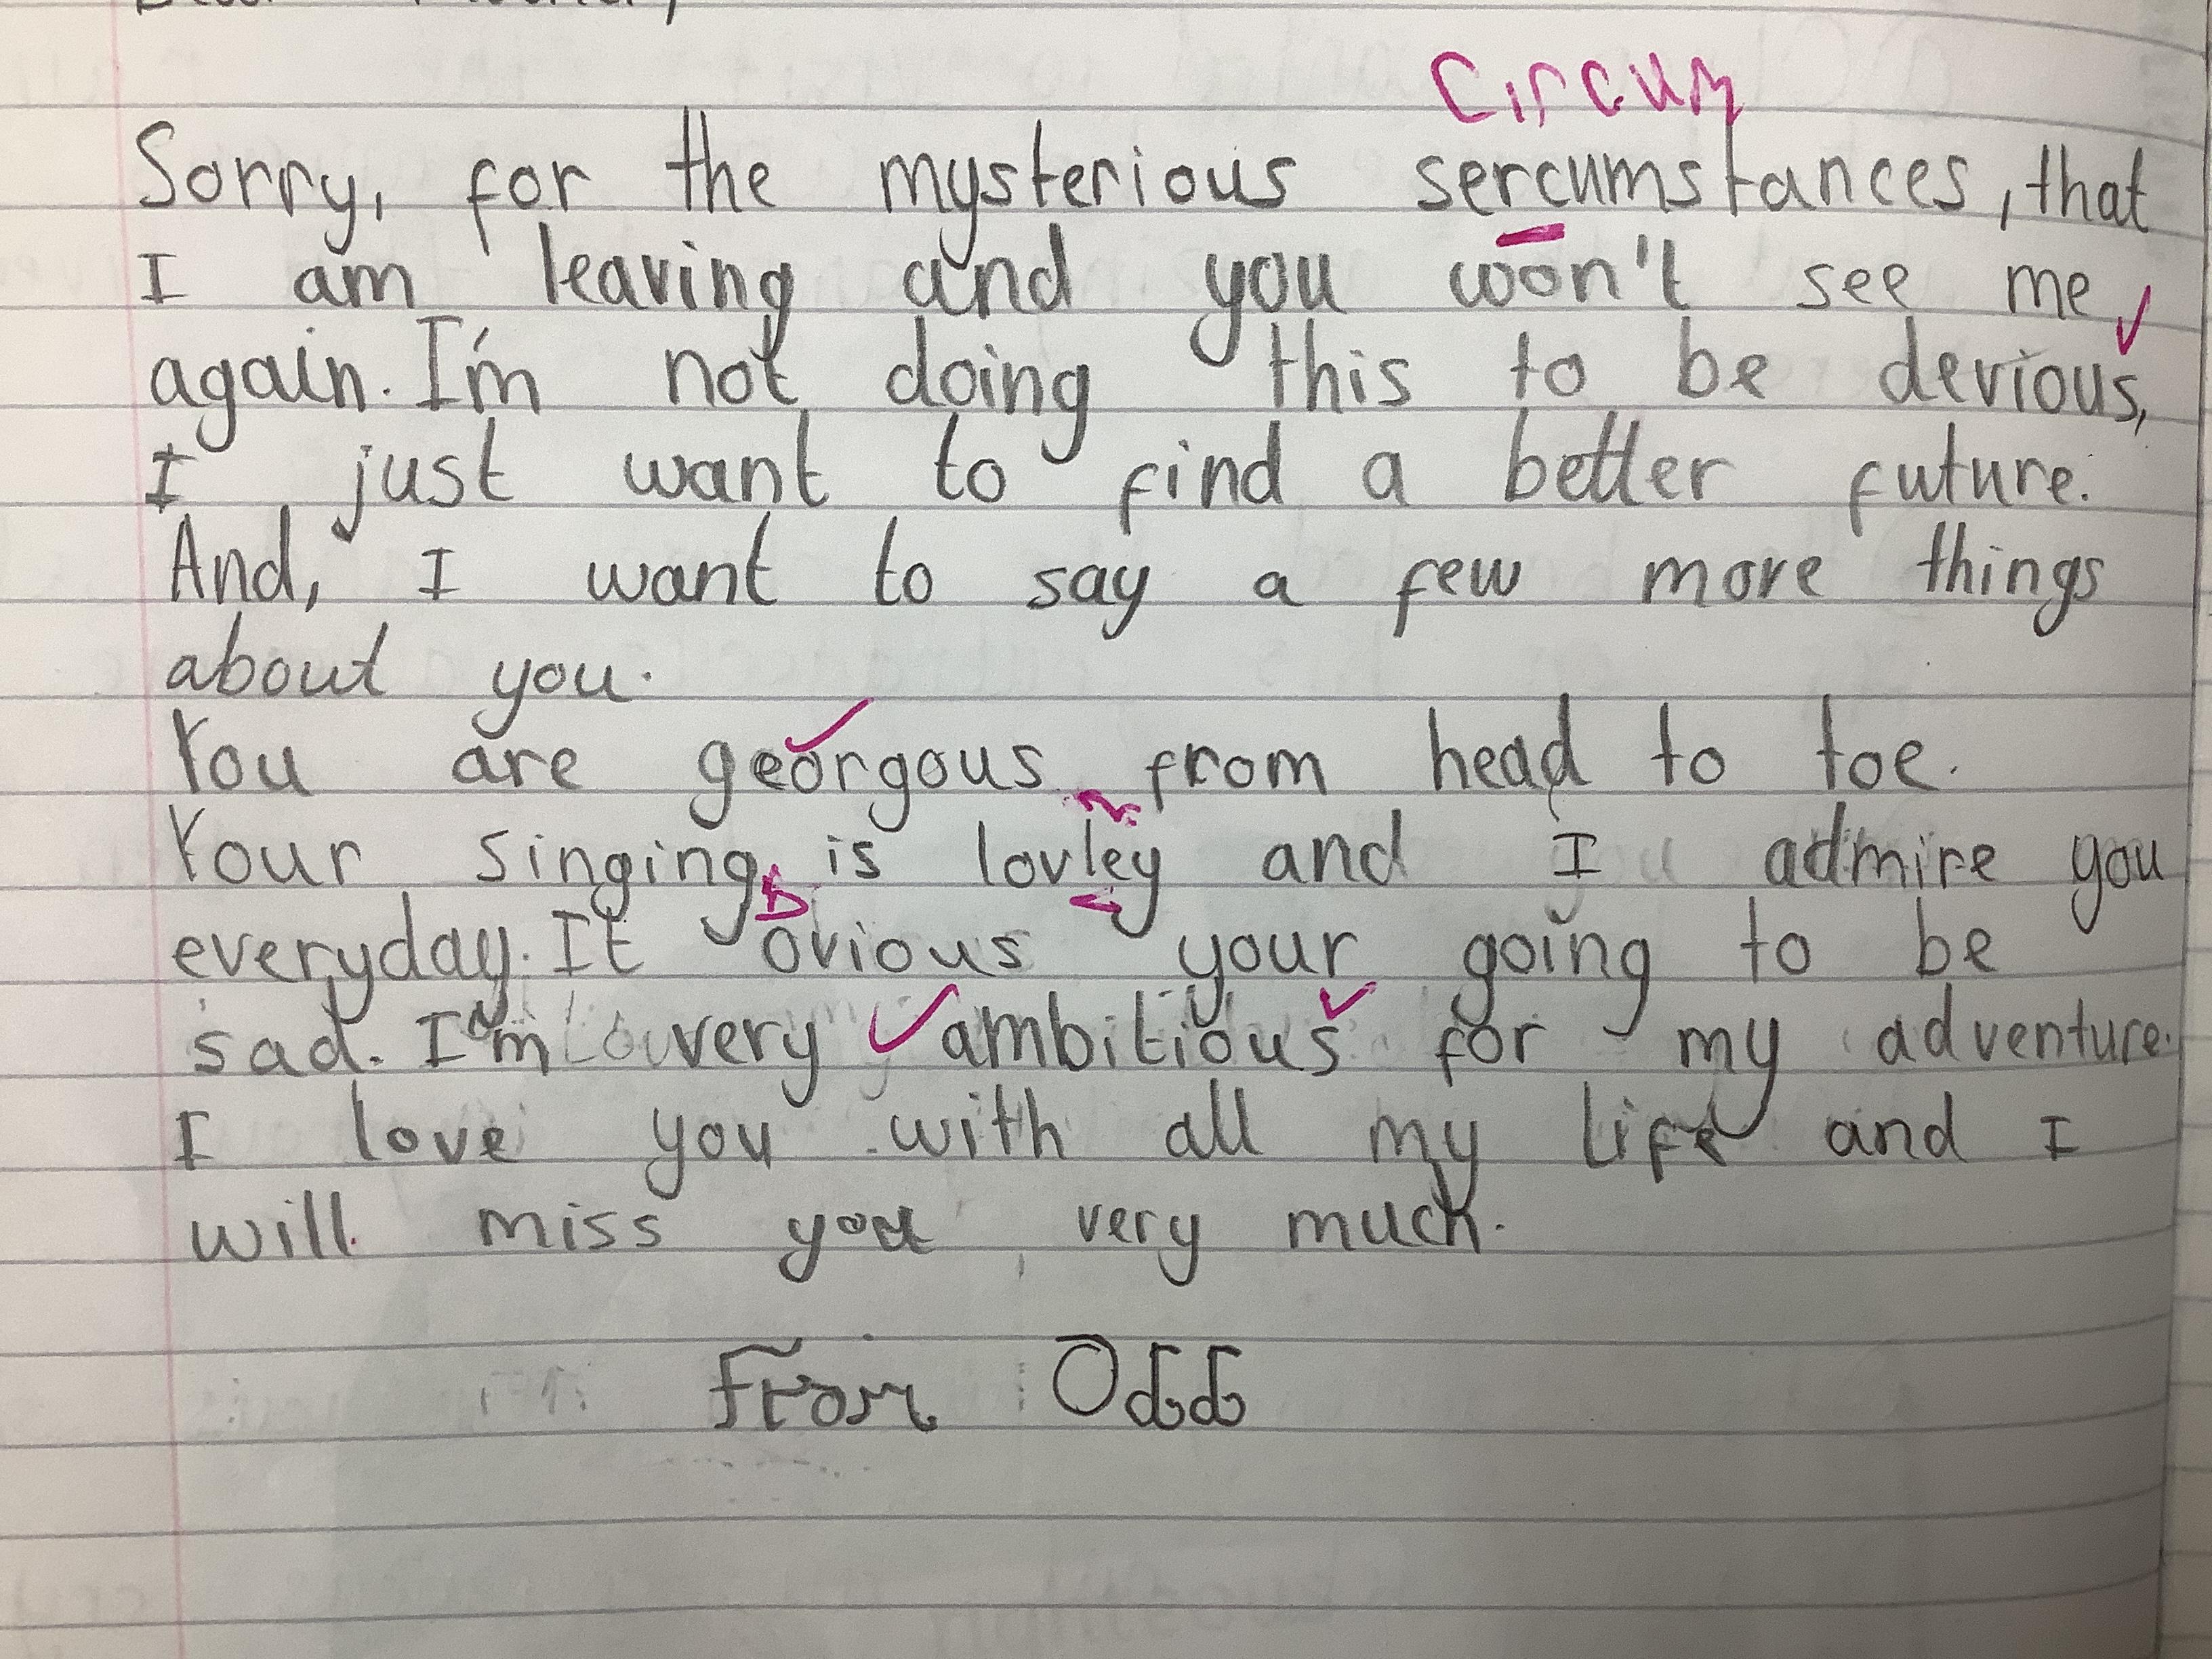 Circum
Sorry, for the mysterious sercumstances, that
I am leaving and you won't see me
again. I'm not doing this to be devious,
I just want to find a better future.
And, I want to say a few more things
about you.
You are georgous from head to toe.
Your singing is lovley and I admire you
everyday. It b ovious your going to be
sad. I'm very ambitious for my adventure.
I love you with all my life and I
will miss you very much.
From Odd